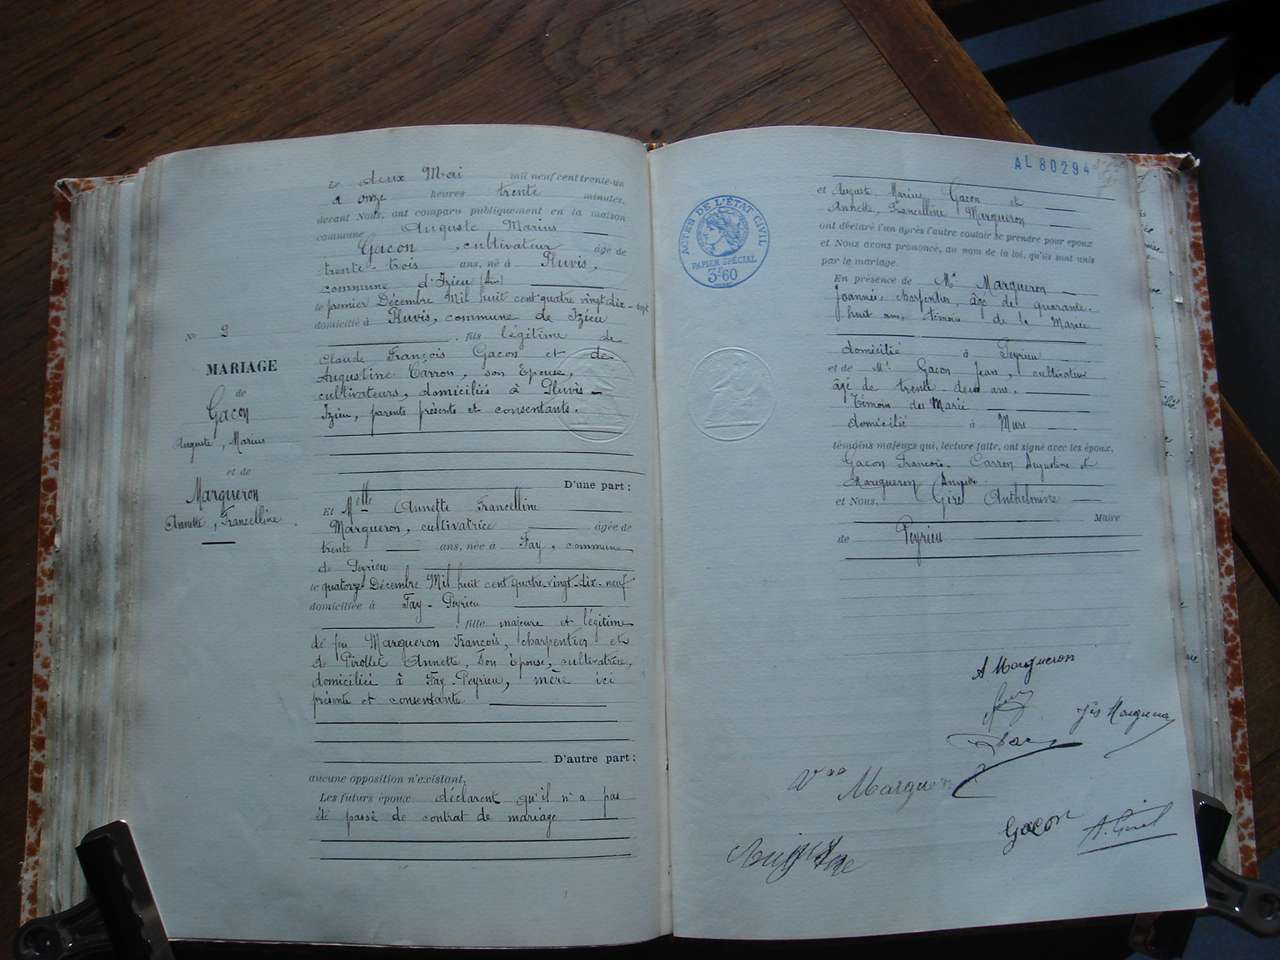 Le deux Mai mil neuf cent trente-un
à onze heures trente minutes,
devant Nous, ont comparu publiquement en la maison
commune Auguste Marius
Gacon, cultivateur âgé de
trente-trois ans, né à Pluvis,
commune d'Izieu (Ain)
le premier Décembre Mil huit cent quatre vingt dix-sept
domicilié à Pluvis, commune de Izieu
, fils légitime de
Claude François Gacon et de
Augustine Carron, son épouse,
cultivateurs, domiciliés à Pluvis-
Izieu, parents présents et consentants.
D'une part;
N° 2
MARIAGE
de
Gacon
Auguste, Marius
et de
Margueron
Annette, Francelline
Et Mlle Annette Francelline
Margueron, cultivatrice âgée de
trente ans, née à Fay, commune
de Peyrieu
le quatorze Décembre Mil huit cent quatre-vingt-dix-neuf
domiciliée à Fay-Peyrieu
, fille majeure et légitime
de feu Margueron François, charpentier et
de Pirollet Annette, son épouse, cultivatrice,
domiciliée à Fay-Peyrieu, mère ici
présente et consentante.
D'autre part;
aucune opposition n'existant,
Les futurs époux déclarent qu'il n'a pas
été passé de contrat de mariage
AL 80294
ACTES DE L'ÉTAT CIVIL
PAPIER SPÉCIAL
3F60
et Auguste, Marius Gacon et
Annette, Francelline Margueron
ont déclaré l'un après l'autre vouloir se prendre pour époux
et Nous avons prononcé, au nom de la loi, qu'ils sont unis
par le mariage.
En présence de Mr Margueron
Joannès, charpentier, âgé de quarante-
huit ans, témoin de la Mariée
domicilié à Peyrieu
et de Mr Gacon Jean, cultivateur
âgé de trent-deux ans.
Témoin du Marié
domicilié à Murs
témoins majeurs qui, lecture faite, ont signé avec les époux,
Gacon François, Carron Augustine et
Margueron Annette
et Nous, Girel Anthelmine
Maire
de Peyrieu
A Margueron
Jes Margueron
Vve Margueron
Gacon
A. Girel